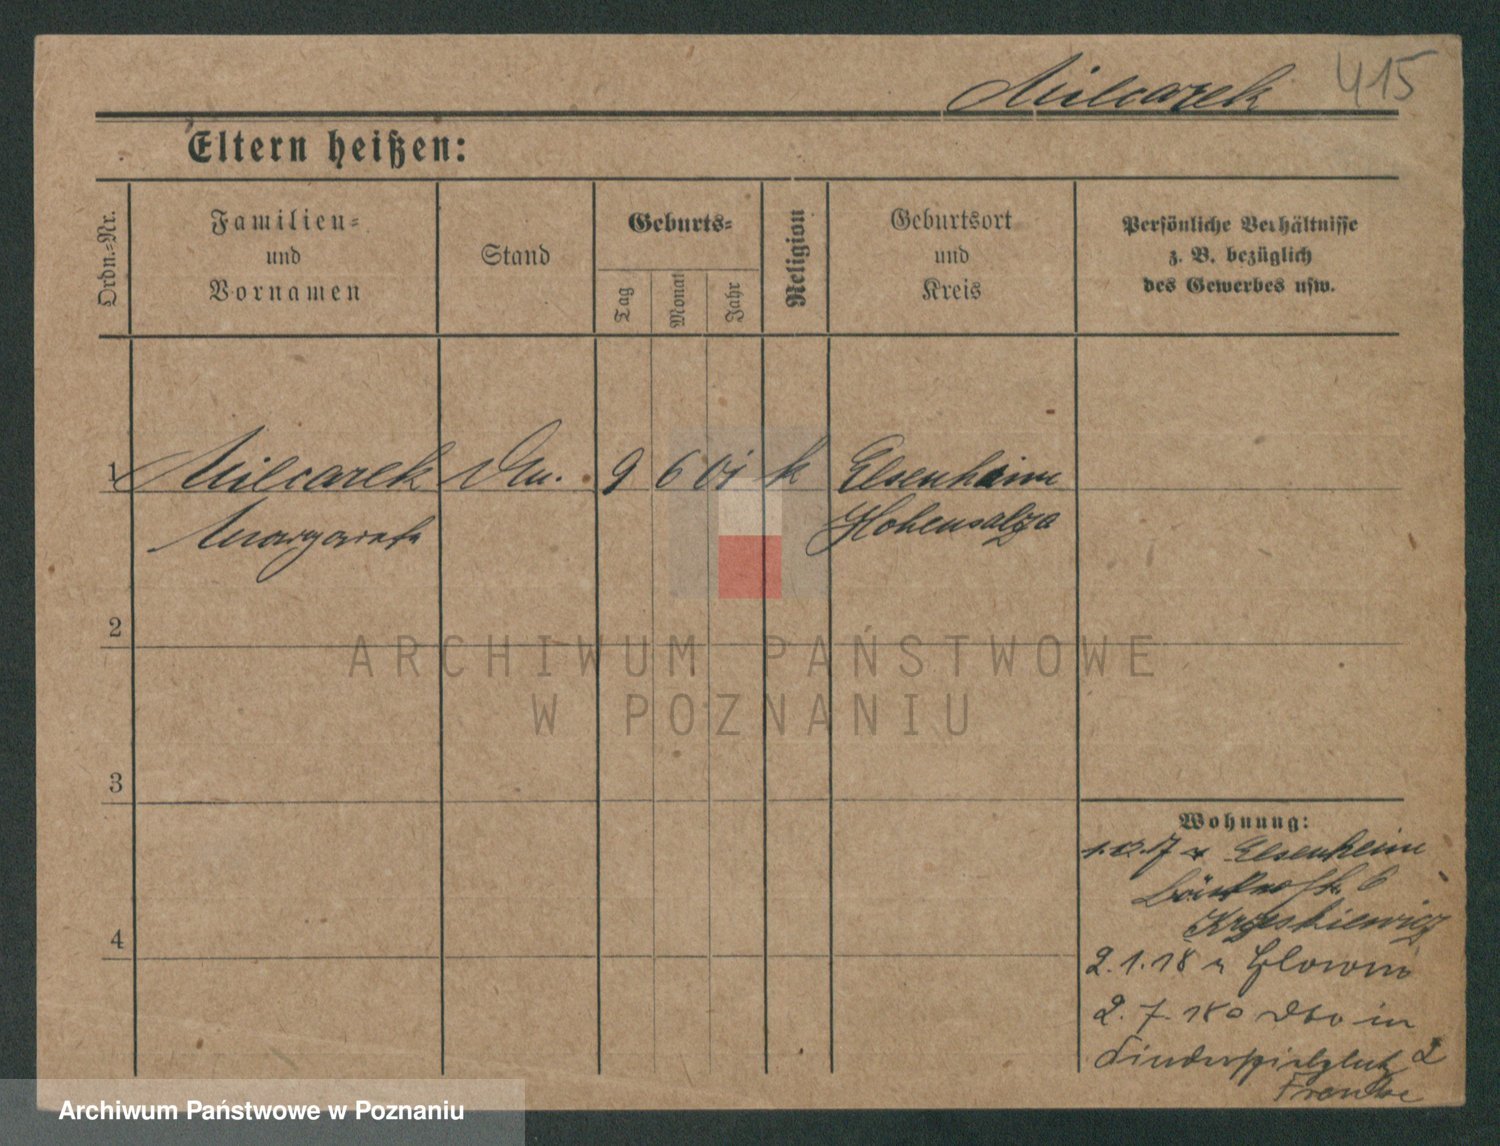 Milcarek 415
Eltern heißen:
Ordn.-Nr.
Familien-
und
Vornamen
Stand
Geburts-
Tag
Monat
Jahr
Religion
Geburtsort
und
Kreis
Persönliche Verhältnisse
z. B. bezüglich
des Gewerbes usw.
1 Milcarek 9 6 01 k Elsenheim
Margarete Hohensalza
2
3
4
Wohnung:
Elsenheim
6
2.1.18
2.7.18 in
2
ARCHIWUM PAŃSTWOWE
W POZNANIU
Archiwum Państwowe w Poznaniu